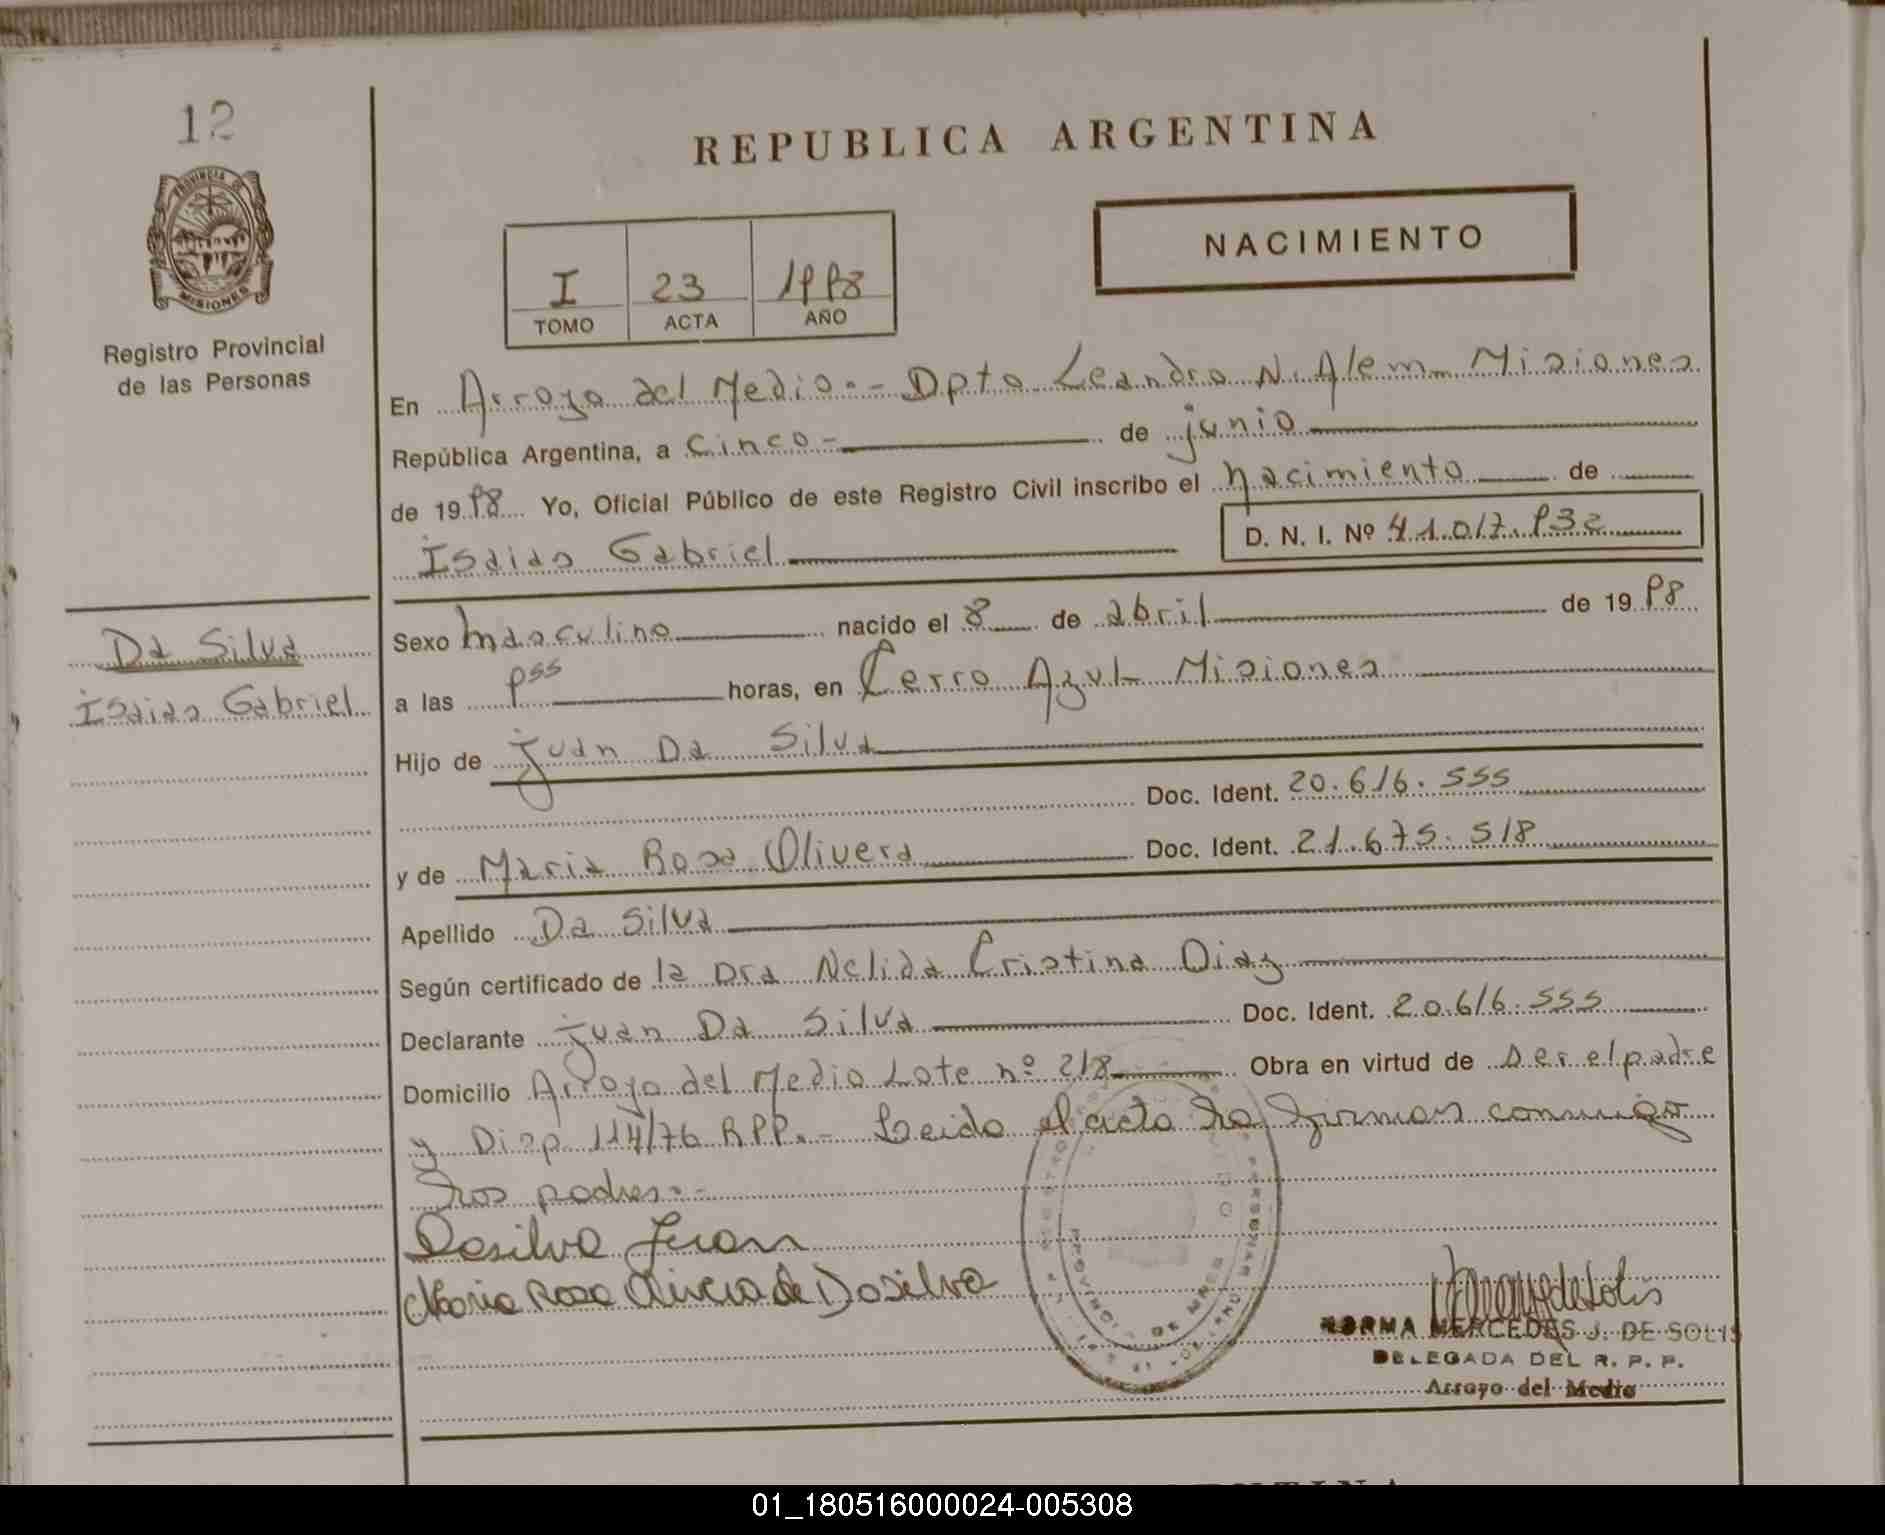 12
REPUBLICA ARGENTINA
PROVINCIA DE
MISIONES
Registro Provincial
de las Personas
I 23 1998
TOMO ACTA AÑO
NACIMIENTO
En Arroyo del Medio.- Dpto Leandro N. Alem Misiones
República Argentina, a cinco- de junio
de 1998 Yo, Oficial Público de este Registro Civil inscribo el nacimiento de
Isaias Gabriel D. N. I. Nº 41.017.932
Da Silva
Isaias Gabriel
Sexo masculino nacido el 8 de abril de 1998
a las 955 horas, en Cerro Azul Misiones
Hijo de juan Da Silva
Doc. Ident. 20.616.555
y de Maria Rosa Olivera Doc. Ident. 21.675.518
Apellido Da Silva
Según certificado de la Dra Nelida Cristina Diaz
Declarante juan Da Silva Doc. Ident. 20.616.555
Domicilio Arroyo del Medio Lote nº 218 Obra en virtud de ser el padre
y Disp 114/76 RPP.- Leido el acta la firman conmigo
los padres.-
Dasilva Juan
Maria Rosa Olivera de Dasilva
NORMA MERCEDES J. DE SOLIS
DELEGADA DEL R. P. P.
Arroyo del Medio
01_180516000024-005308